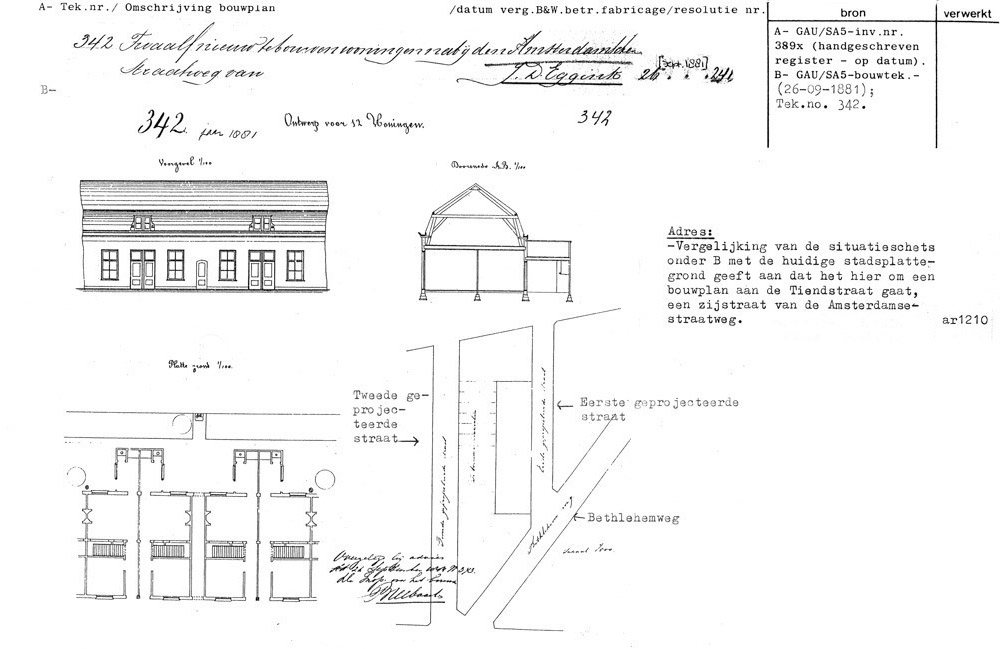 A- Tek.nr./ Omschrijving bouwplan
/datum verg.B&W.betr.fabricage/resolutie nr.
bron
verwerkt
342 Twaalf nieuw te bouwen woningen nabij den Amsterdamschen
Straatweg van J. D. Eggink 26
[sept. 1881]
A- GAU/SA5-inv.nr.
389x (handgeschreven
register - op datum).
B- GAU/SA5-bouwtek.-
(26-09-1881);
Tek.no. 342.
B-
342. jaar 1881
Ontwerp voor 12 Woningen.
342
Voorgevel 1/100
Doorsnede A.B. 1/100
Adres:
-Vergelijking van de situatieschets
onder B met de huidige stadsplatte-
grond geeft aan dat het hier om een
bouwplan aan de Tiendstraat gaat,
een zijstraat van de Amsterdamse-
straatweg.
ar1210
Platte grond 1/100
Tweede ge-
projec-
teerde
straat
Eerste geprojecteerde
straat
geprojecteerde straat
te bouwen woningen
geprojecteerde straat
Bethlehem weg
Bethlehemweg
schaal
bij advies
September